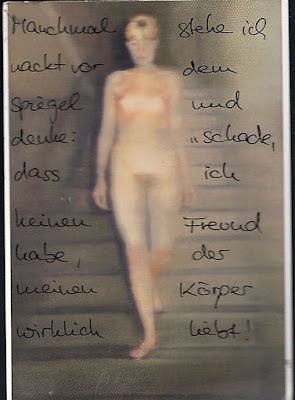 Manchmal stehe ich
nackt vor dem
Spiegel und
denke: „schade,
dass ich
keinen Freund
habe, der
meinen Körper
wirklich liebt!